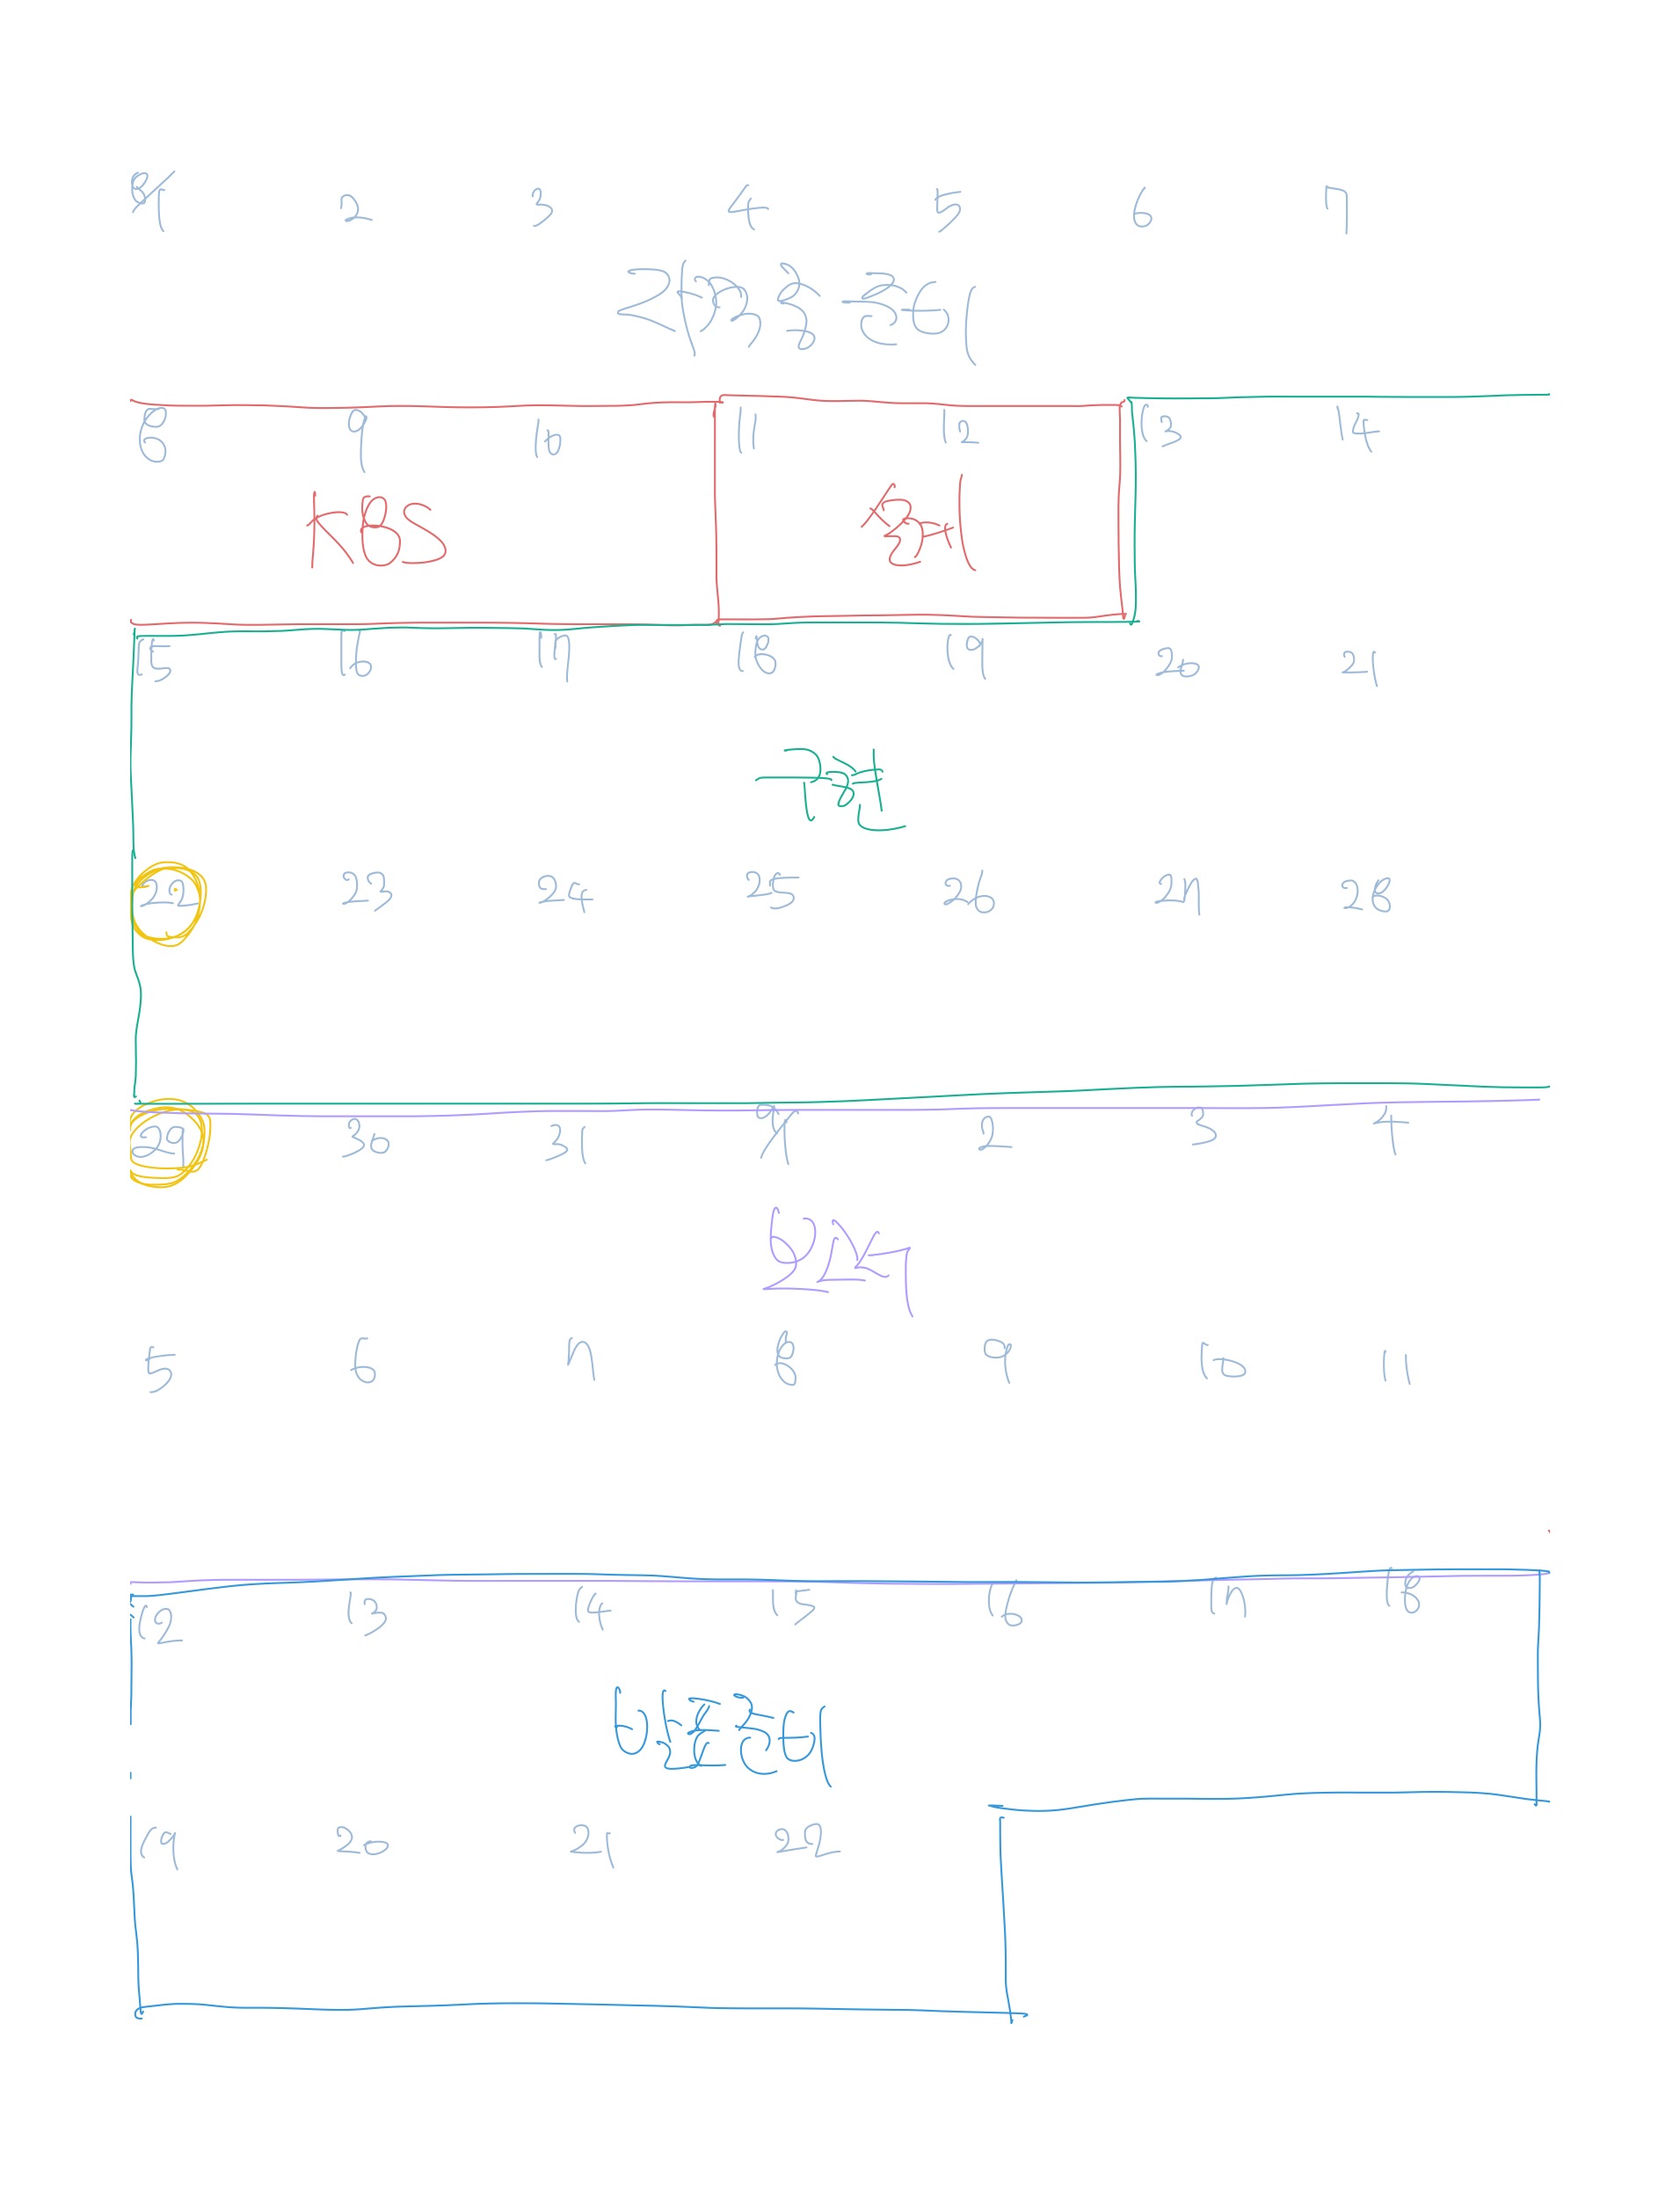 8/1 2 3 4 5 6 7
8 9 10 11 12 13 14
KBS
15 16 17 18 19 20 21
구현
22 23 24 25 26 27 28
29 30 31 9/1 2 3 4
보고서
5 6 7 8 9 10 11
12 13 14 15 16 17 18
발표준비
19 20 21 22